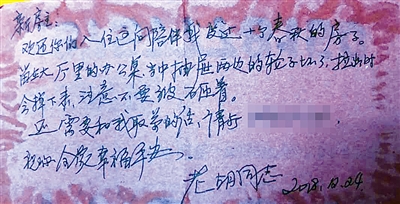 新房主：
欢迎你们入住这间陪伴我度过十个春秋的房子。
留在大厅里的办公桌当中抽屉两边的轮子坏了，拉出时
会掉下来，注意不要被砸着。
还需要和我联系的话，请拨
祝你全家幸福平安。
老胡同志 2018.12.24